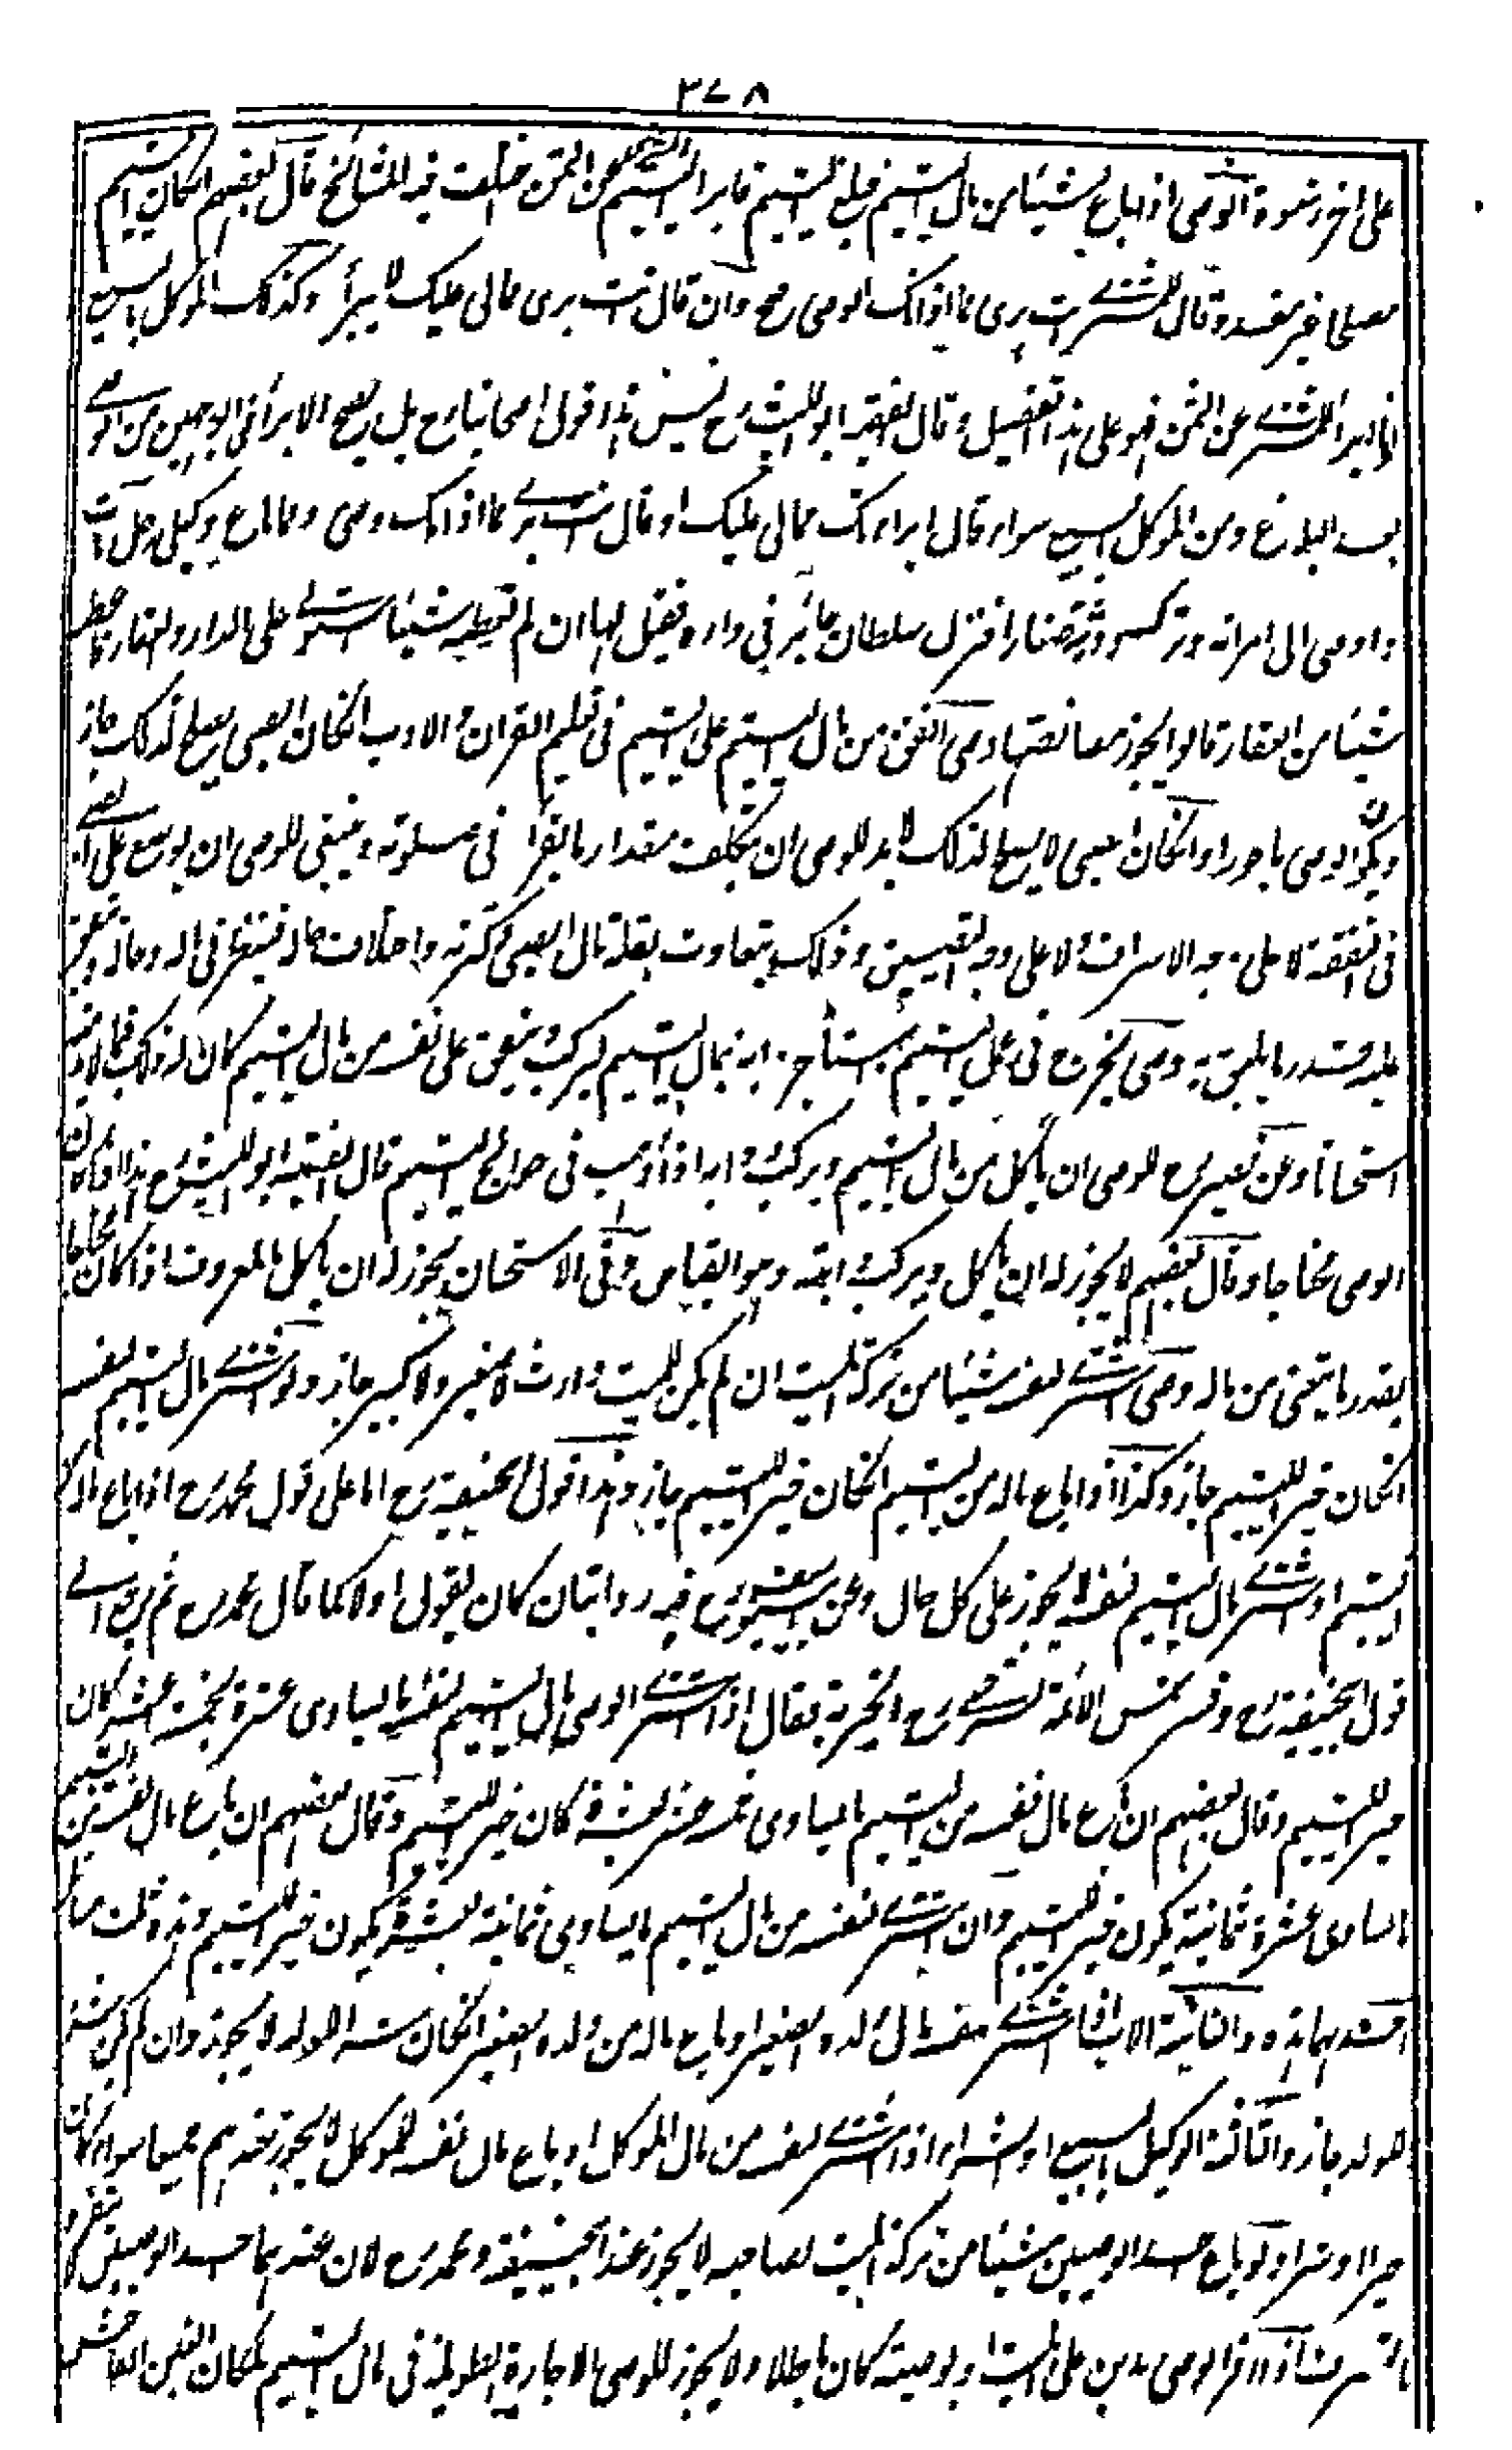 ٣٧٨
على اخر رشوة الوصى اذا باع شيئا من مال اليتيم فبلغ اليتيم فابرأ اليتيم المشترى عن الثمن اختلفت فيه المشائخ قال بعضهم ان كان اليتيم
مصلحا غير مفسد وقال للمشترى انت برى مما اذانك الوصى صح وان قال انت برى مما لى عليك لا يبرأ وكذلك الموكل بالبيع
اذا ابرأ المشترى عن الثمن فهو على هذا التفصيل وقال الفقيه ابو الليث رح ليس هذا قول اصحابنا رح بل يصح الابرأ فى الوجهين من الوصى
بعد البلوغ ومن الموكل بالبيع سواء قال ابرأتك مما لى عليك او قال انت برى مما اذانك وصى ومما باع وكيلى رجل مات
واوصى الى امرأته وترك ورثة صغارا فنزل سلطان جائر فى داره فقيل لها ان لم تعطيه شيئا استولى على الدار والعقار فاعطت
شيئا من العقار قالوا يجوز مصانعتها وصى انفق من مال اليتيم على اليتيم فى تعليم القران والادب انكان الصبى يصلح لذلك جاز
ويكون الوصى ماجورا وانكان الصبى لا يصلح لذلك لا بد للوصى ان يتكلف مقدار ما يقرأ فى صلوته وينبغى للوصى ان يوسع على الصبى
فى النفقة لا على وجه الاسراف ولا على وجه التضييق وذلك يتفاوت بقلة مال الصبى وكثرته واختلاف حاله فينظر فى ماله وحاله وينفق
عليه قدر ما يليق به وصى يخرج فى عمل اليتيم يستأجر دابة بمال اليتيم ليركب وينفق على نفسه من مال اليتيم كان له ذلك فيما لا بد منه
استحسانا وعن نصير رح للوصى ان ياكل من مال اليتيم ويركب دوابه اذا ذهب فى حوائج اليتيم قال الفقيه ابو الليث رح هذا اذا كان
الوصى محتاجا وقال بعضهم لا يجوز له ان ياكل ويركب دابته وهو القياس وفى الاستحسان يجوز له ان ياكل بالمعروف اذا كان محتاجا
بقدر ما يتعنى من ماله وصى اشترى لنفسه شيئا من تركة الميت ان لم يكن للميت وارث لا صغير ولا كبير جاز ولو اشترى مال اليتيم لنفسه
انكان خير لليتيم جاز وكذا اذا باع ماله من اليتيم انكان خير لليتيم جاز وهذا قول ابيحنيفة رح اما على قول محمد رح اذا باع ماله من
اليتيم او اشترى مال اليتيم لنفسه لا يجوز على كل حال وعن ابى يوسف رح فيه روايتان كان يقول اولا كما قال محمد رح ثم رجع الى
قول ابيحنيفة رح وفسر شمس الائمة السرخسى رح الخيرية فقال اذا اشترى الوصى مال اليتيم لنفسه ما يساوى عشرة بخمسة عشر كان
خير لليتيم وقال بعضهم ان باع مال نفسه من اليتيم ما يساوى خمسة عشر بعشرة كان خير لليتيم وقال بعضهم ان باع مال نفسه من اليتيم
ما يساوى عشرة ثمانية يكون خير لليتيم وان اشترى لنفسه من مال اليتيم ما يساوى ثمانية بعشرة يكون خير لليتيم وهذه ثلث مسائل
احدها هذه والثانية الاب اذا اشترى لنفسه مال ولده الصغير او باع ماله من ولده الصغير انكان شرا للولد لا يجوز وان لم يكن شرا
للولد جاز والثالثة الوكيل بالبيع او الشراء اذا اشترى لنفسه من مال الموكل او باع مال نفسه للموكل لا يجوز عندهم جميعا سواء كان
خيرا او شرا ولو باع احد الوصيين شيئا من تركة الميت لصاحبه لا يجوز عند ابيحنيفة ومحمد رح لان عندهما احد الوصيين لا ينفرد
بالتصرف اذا اقر الوصى بدين على الميت او بوصية كان باطلا ولا يجوز للوصى الاجارة الطويلة فى مال اليتيم لمكان الغبن الفاحش